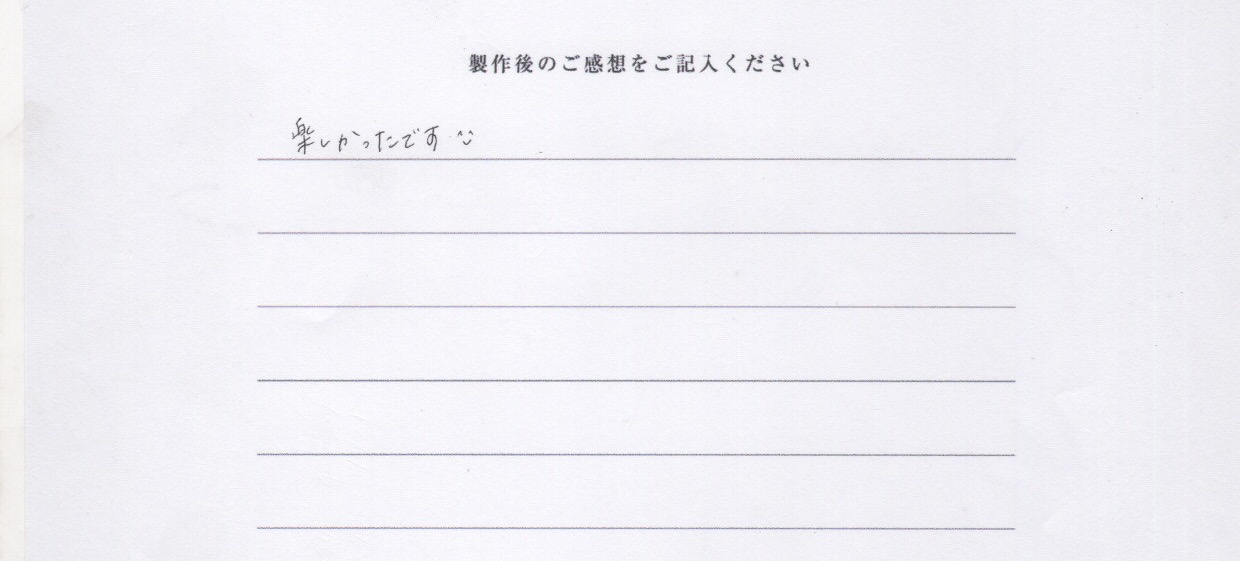 製作後のご感想をご記入ください
楽しかったです^^